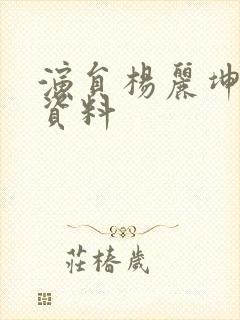 演員楊麗坤
資料
莊椿歲